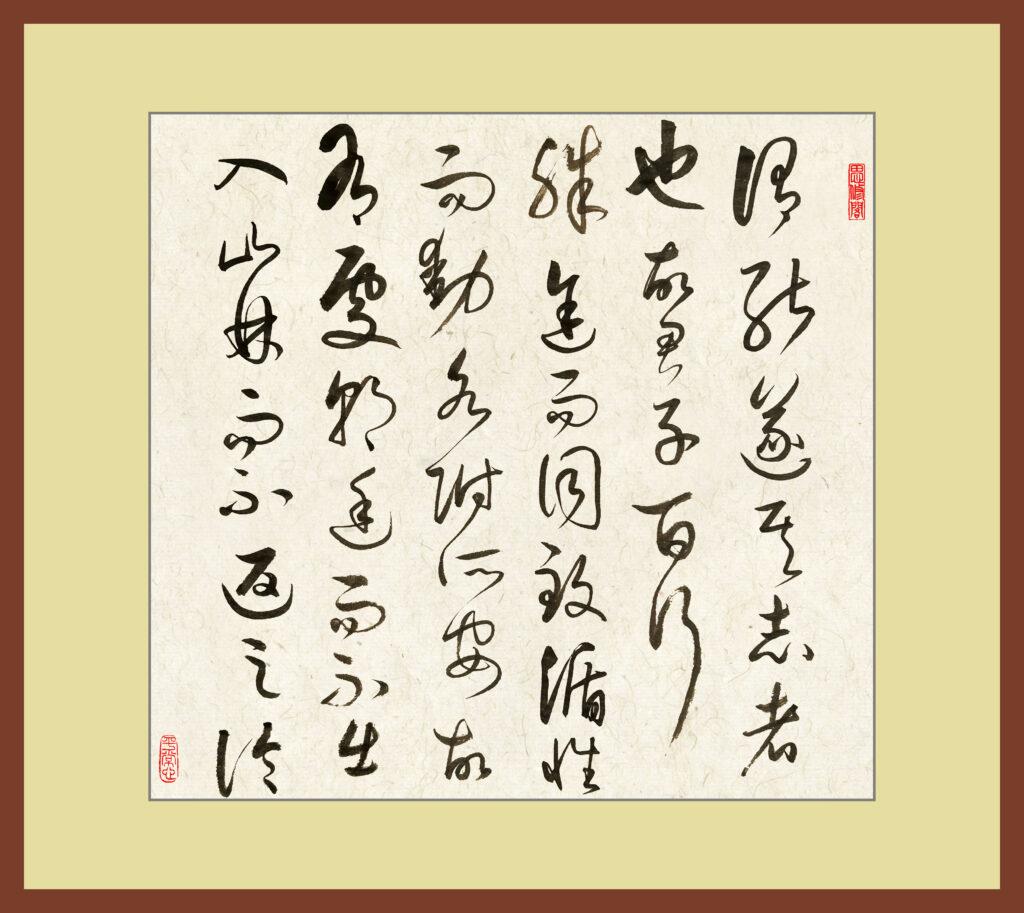 思修閣
謂能遂其志者
也故君子百行
殊途而同致循性
而動各附所安故
有處朝廷而不出
入山林而不返之論
平常心